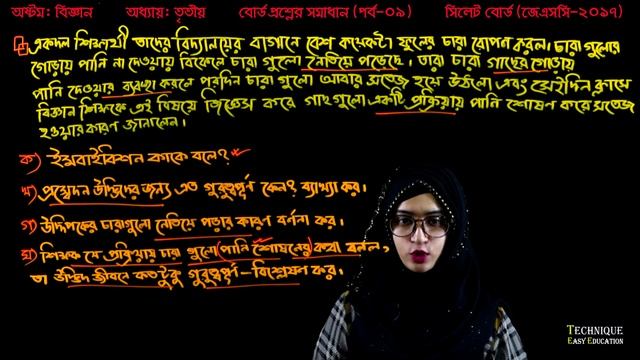 অষ্টম: বিজ্ঞান অধ্যায়: তৃতীয় বোর্ড প্রশ্নের সমাধান (পর্ব-০৯) সিলেট বোর্ড (জেএসসি-২০১৭)
একদল শিক্ষার্থী তাদের বিদ্যালয়ের বাগানে বেশ কয়েকটা ফুলের চারা রোপন করল। চারা গুলোর
গোড়ায় পানি না দেওয়ায় বিকেলে চারা গুলো নেতিয়ে পড়েছে। তারা চারা গাছের গোড়ায়
পানি দেওয়ার ব্যবস্থা করলে পরদিন চারা গুলো আবার সতেজ হয়ে উঠলো এবং সেইদিন ক্লাসে
বিজ্ঞান শিক্ষককে এই বিষয়ে জিজ্ঞেস করে গাছগুলো একটি প্রক্রিয়ায় পানি শোষণ করে সতেজ
হওয়ার কারণ জানালেন।
ক) ইমবাইবিশন কাকে বলে?
খ) প্রস্বেদন উদ্ভিদের জন্য এত গুরুত্বপূর্ণ কেন? ব্যাখ্যা কর।
গ) উদ্দিপকের চারাগুলো নেতিয়ে পড়ার কারণ বর্ণনা কর।
ঘ) শিক্ষক যে প্রক্রিয়ায় চারা গুলো (পানি শোষনের) কথা বলল,
তা উদ্ভিদ জীবনে কতটুকু গুরুত্বপূর্ণ - বিশ্লেষণ কর।
TECHNIQUE
EASY EDUCATION